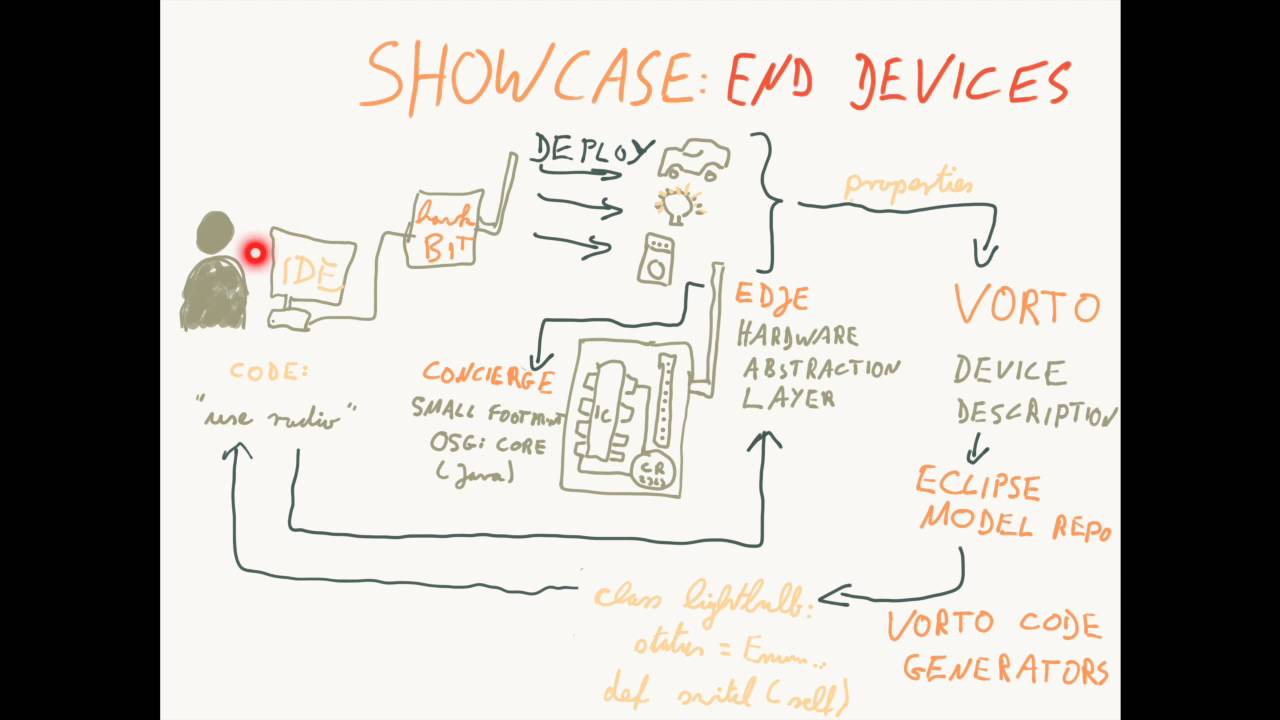 SHOWCASE: END DEVICES
DEPLOY
properties
hawk
BIT
IDE
EDGE
HARDWARE
ABSTRACTION
LAYER
VORTO
DEVICE
DESCRIPTION
CODE:
"use radio"
CONCIERGE
SMALL FOOTPRINT
OSGi CORE
(Java)
IC
CR
ECLIPSE
MODEL REPO
class lightbulb:
status = Enum...
def switch (self)
VORTO CODE
GENERATORS